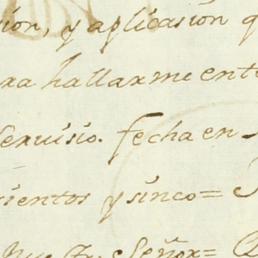 sion, y aplicasion q
ra hallarme ente
servisio. fecha en
sientos y sinco=
Señor=